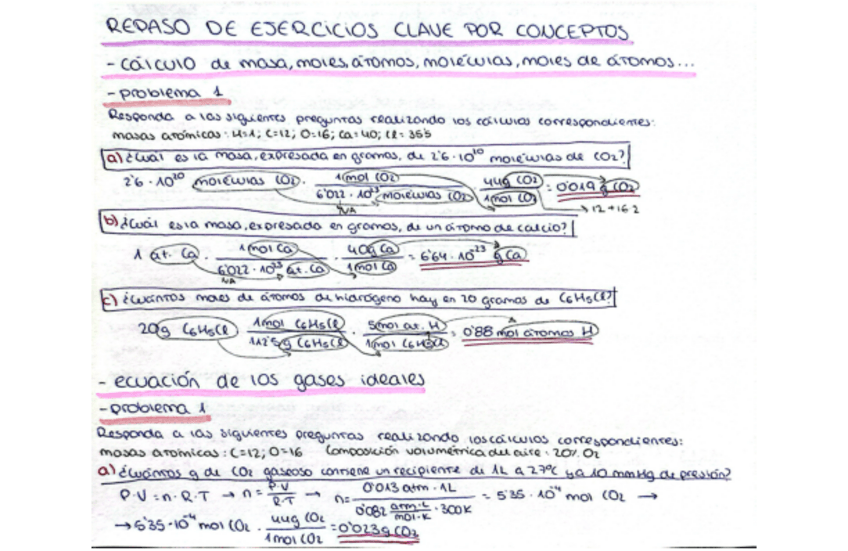 REPASO DE EJERCICIOS CLAVE POR CONCEPTOS
- cálculo de masa, moles, átomos, moléculas, moles de átomos...
- problema 1
Responda a las siguientes preguntas realizando los cálculos correspondientes:
masas atómicas: H=1; C=12; O=16; Ca=40; Cl=35'5
a) ¿Cuál es la masa, expresada en gramos, de 2'6·10²⁰ moléculas de CO₂?
2'6·10²⁰ moléculas CO₂ · 1mol CO₂ / 6'022·10²³ moléculas CO₂ · 44g CO₂ / 1mol CO₂ = 0'019 g CO₂
NA → 12+16·2
b) ¿Cuál es la masa, expresada en gramos, de un átomo de calcio?
1 at. Ca · 1mol Ca / 6'022·10²³ at. Ca · 40g Ca / 1mol Ca = 6'64·10⁻²³ g Ca
NA
c) ¿Cuántos moles de átomos de hidrógeno hay en 20 gramos de C₆H₅Cl?
20g C₆H₅Cl · 1mol C₆H₅Cl / 112'5g C₆H₅Cl · 5mol at. H / 1mol C₆H₅Cl = 0'88 mol átomos H
- ecuación de los gases ideales
- problema 1
Responda a las siguientes preguntas realizando los cálculos correspondientes:
masas atómicas: C=12; O=16 Composición volumétrica del aire: 20% O₂
a) ¿Cuántos g de CO₂ gaseoso contiene un recipiente de 1L a 27ºC y a 10 mmHg de presión?
P·V = n·R·T → n = P·V / R·T → n = 0'013 atm · 1L / 0'082 atm·L / mol·K · 300K = 5'35·10⁻⁴ mol CO₂ →
→ 5'35·10⁻⁴ mol CO₂ · 44g CO₂ / 1mol CO₂ = 0'023g CO₂